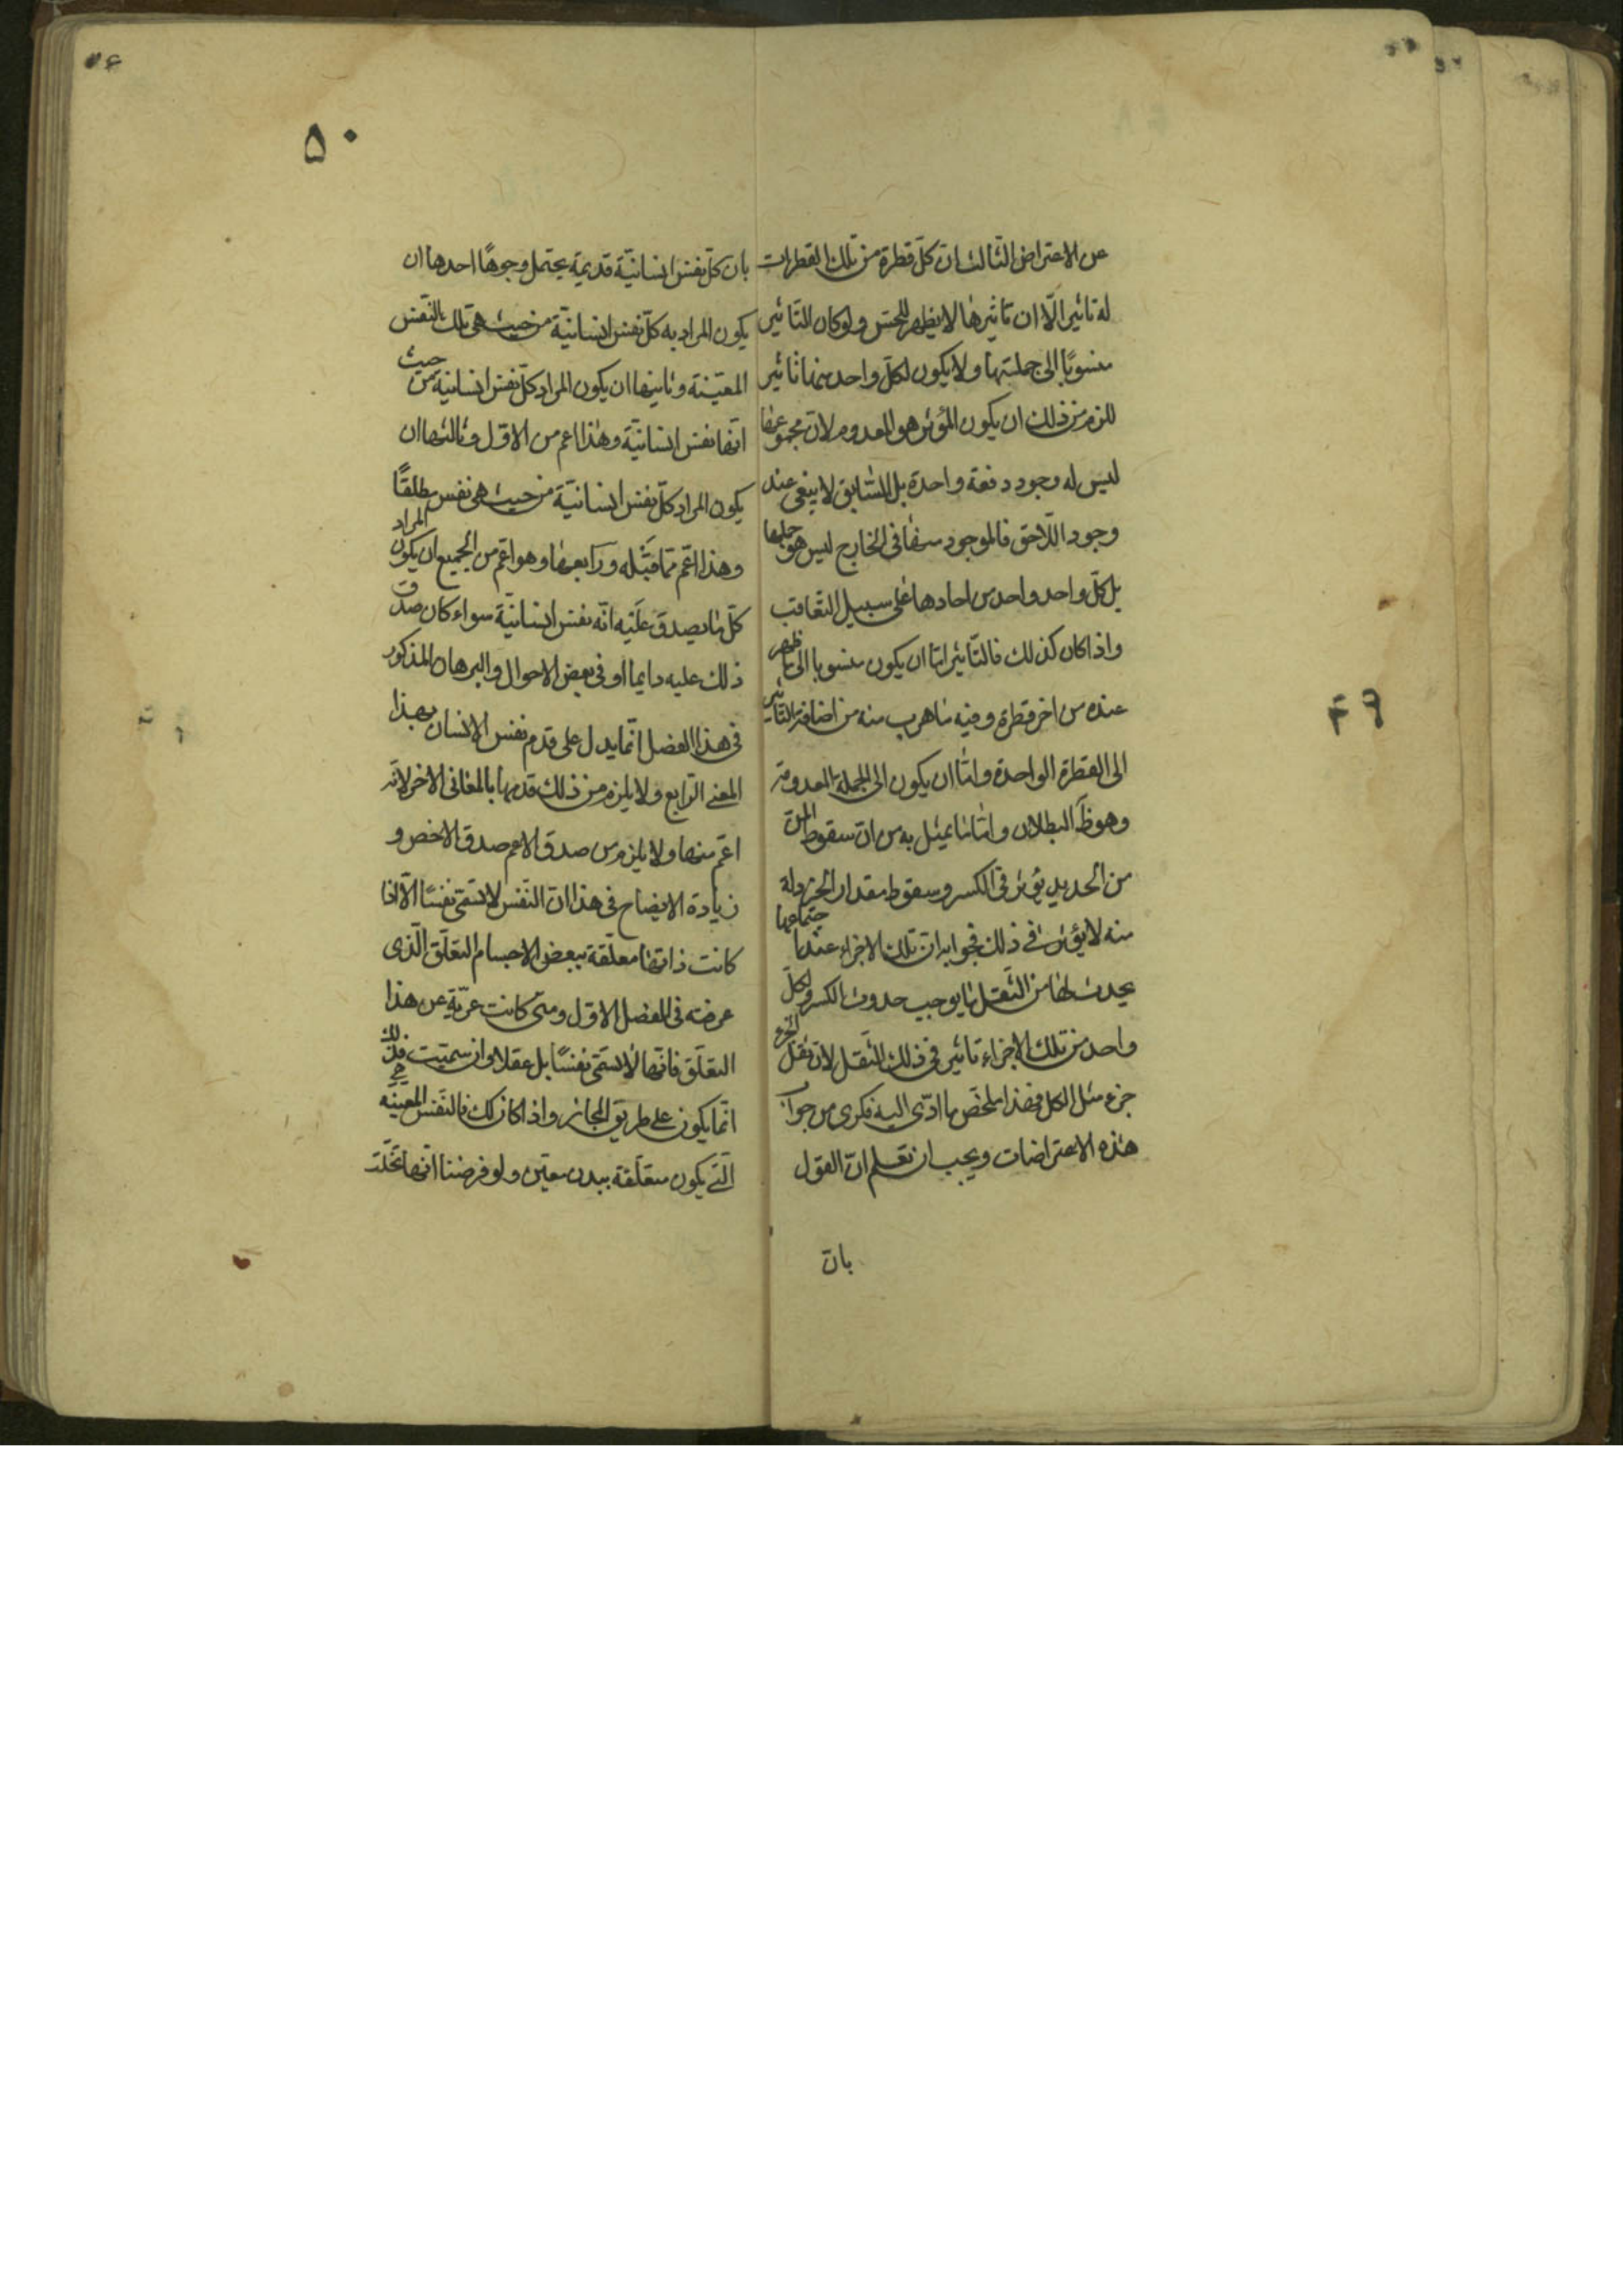 عن الاعتراض الثالث ان كلّ قطرة من تلك القطرات
له تاثير الّا ان تاثيرها لا يظهر للحسّ ولو كان التاثير
منسوبًا الى جملتها ولا يكون لكل واحد منها تاثير
للزم من ذلك ان يكون المؤثر هو المعدوم لانّ مجموعها
ليس له وجود دفعة واحدة بل السابق لا يبقى عند
وجود اللّاحق فالموجود منها فى الخارج ليس هو جملتها
بل كلّ واحد واحد من احادها على سبيل التعاقب
واذا كان كذلك فالتّاثير امّا ان يكون منسوبا الى ما ظهر
عنده من اخر قطرة وفيه ما هرب منه من اضافة التاثير
الى القطرة الواحدة وامّا ان يكون الى الجملة المعدومة
وهو ظ البطلان وامّا ما يمثل به من انّ سقوط المن
من الحديد يؤثر فى الكسر وسقوط مقدار الخردلة
منه لا يؤثر فى ذلك فجوابه انّ تلك الاجزاء عند اجتماعها
يحدث لها من الثّقل ما يوجب حدوث الكسر ولكلّ
واحد من تلك الاجزاء تاثير فى ذلك الثقل لانّ ثقل الجزء
جزء مثل الكل فهذا ملخّص ما ادّى اليه فكرى من جواب
هذه الاعتراضات ويجب ان تعلم انّ القول
بانّ
٤٩
٥٠
بانّ كلّ نفس انسانيّة قديمة يحتمل وجوهًا احدها ان
يكون المراد به كلّ نفس انسانيّة من حيث هى تلك النّفس
المعيّنة وثانيها ان يكون المراد كلّ نفس انسانية من حيث
انّها نفس انسانيّة وهذا اعم من الاوّل وثالثها ان
يكون المراد كلّ نفس انسانيّة من حيث هى نفس مطلقًا
وهذا اعّم ممّا قبله ورابعها وهو اعّم من الجميع ان يكون المراد
كلّ ما يصدق عليه انّه نفس انسانيّة سواء كان صدق
ذلك عليه دايما او فى بعض الاحوال والبرهان المذكور
فى هذا الفصل انّما يدل على قدم نفس الانسان بهذا
المعنى الرّابع ولا يلزم من ذلك قدمها بالمعانى الاخر لانّه
اعّم منها ولا يلزم من صدق الاعم صدق الاخص و
زيادة الايضاح فى هذا انّ النّفس لا تسمّى نفسًا الّا اذا
كانت ذاتها معلّقة ببعض الاجسام التعلّق الّذى
عرفته فى الفصل الاوّل ومتى كانت عريّة عن هذا
التعلّق فانّها لا تسمّى نفسًا بل عقلا وان سميّت فذلك
انّما يكون على طريق المجاز واذا كان كك فالنّفس المعيّنه
الّتى يكون متعلّقة ببدن معيّن ولو فرضنا انّها تخلّت